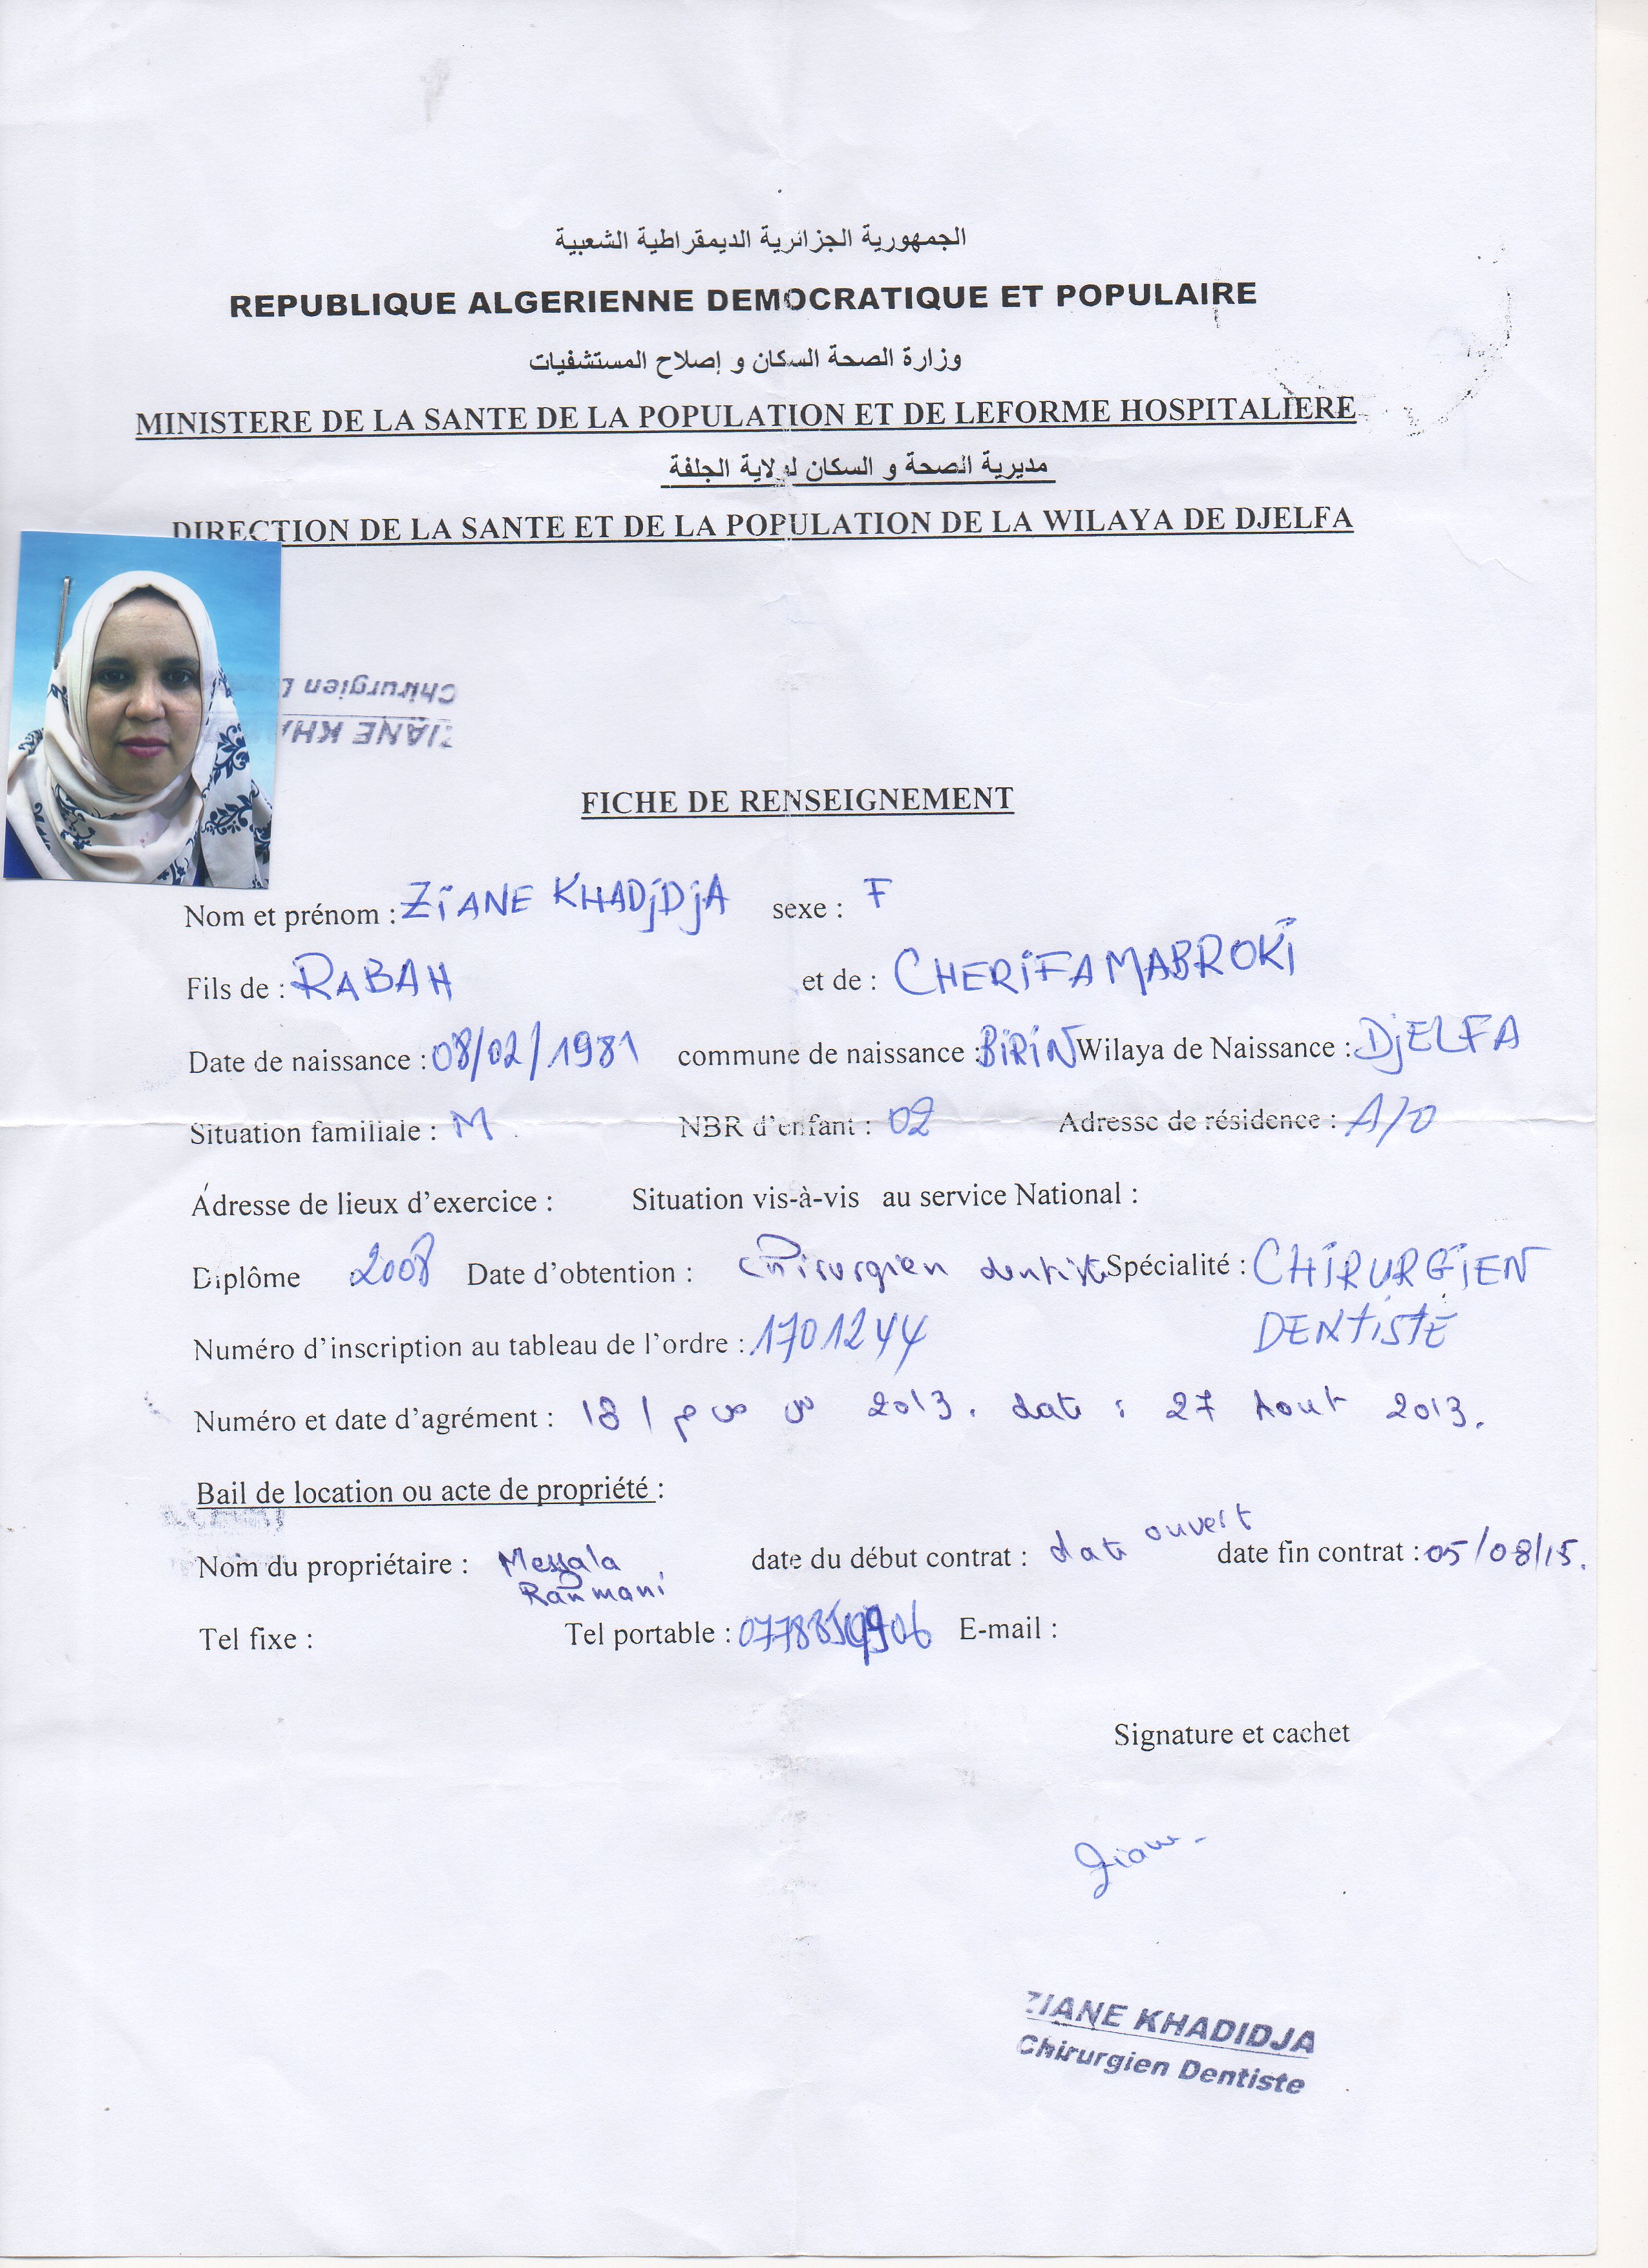 الجمهورية الجزائرية الديمقراطية الشعبية
REPUBLIQUE ALGERIENNE DEMOCRATIQUE ET POPULAIRE
وزارة الصحة السكان و إصلاح المستشفيات
MINISTERE DE LA SANTE DE LA POPULATION ET DE LEFORME HOSPITALIERE
مديرية الصحة و السكان لولاية الجلفة
DIRECTION DE LA SANTE ET DE LA POPULATION DE LA WILAYA DE DJELFA
Chirurgien D
ZIANE KHA
FICHE DE RENSEIGNEMENT
Nom et prénom : ZiANE KHADjDjA sexe : F
Fils de : RABAH et de : CHERiFA MABROKi
Date de naissance : 08/02/1981 commune de naissance : BiRiN Wilaya de Naissance : DjELFA
Situation familiale : M NBR d'enfant : 02 Adresse de résidence : A/O
Adresse de lieux d'exercice : Situation vis-à-vis au service National :
Diplôme 2008 Date d'obtention : chirurgien dentiste Spécialité : CHiRURGiEN
DENtistE
Numéro d'inscription au tableau de l'ordre : 1701244
Numéro et date d'agrément : 181 م ص س 2013. date : 27 Aout 2013.
Bail de location ou acte de propriété :
Nom du propriétaire : Messala Rahmani date du début contrat : date ouvert date fin contrat : 05/08/15.
Tel fixe : Tel portable : E-mail :
Signature et cachet
Ziane
ZIANE KHADIDJA
Chirurgien Dentiste